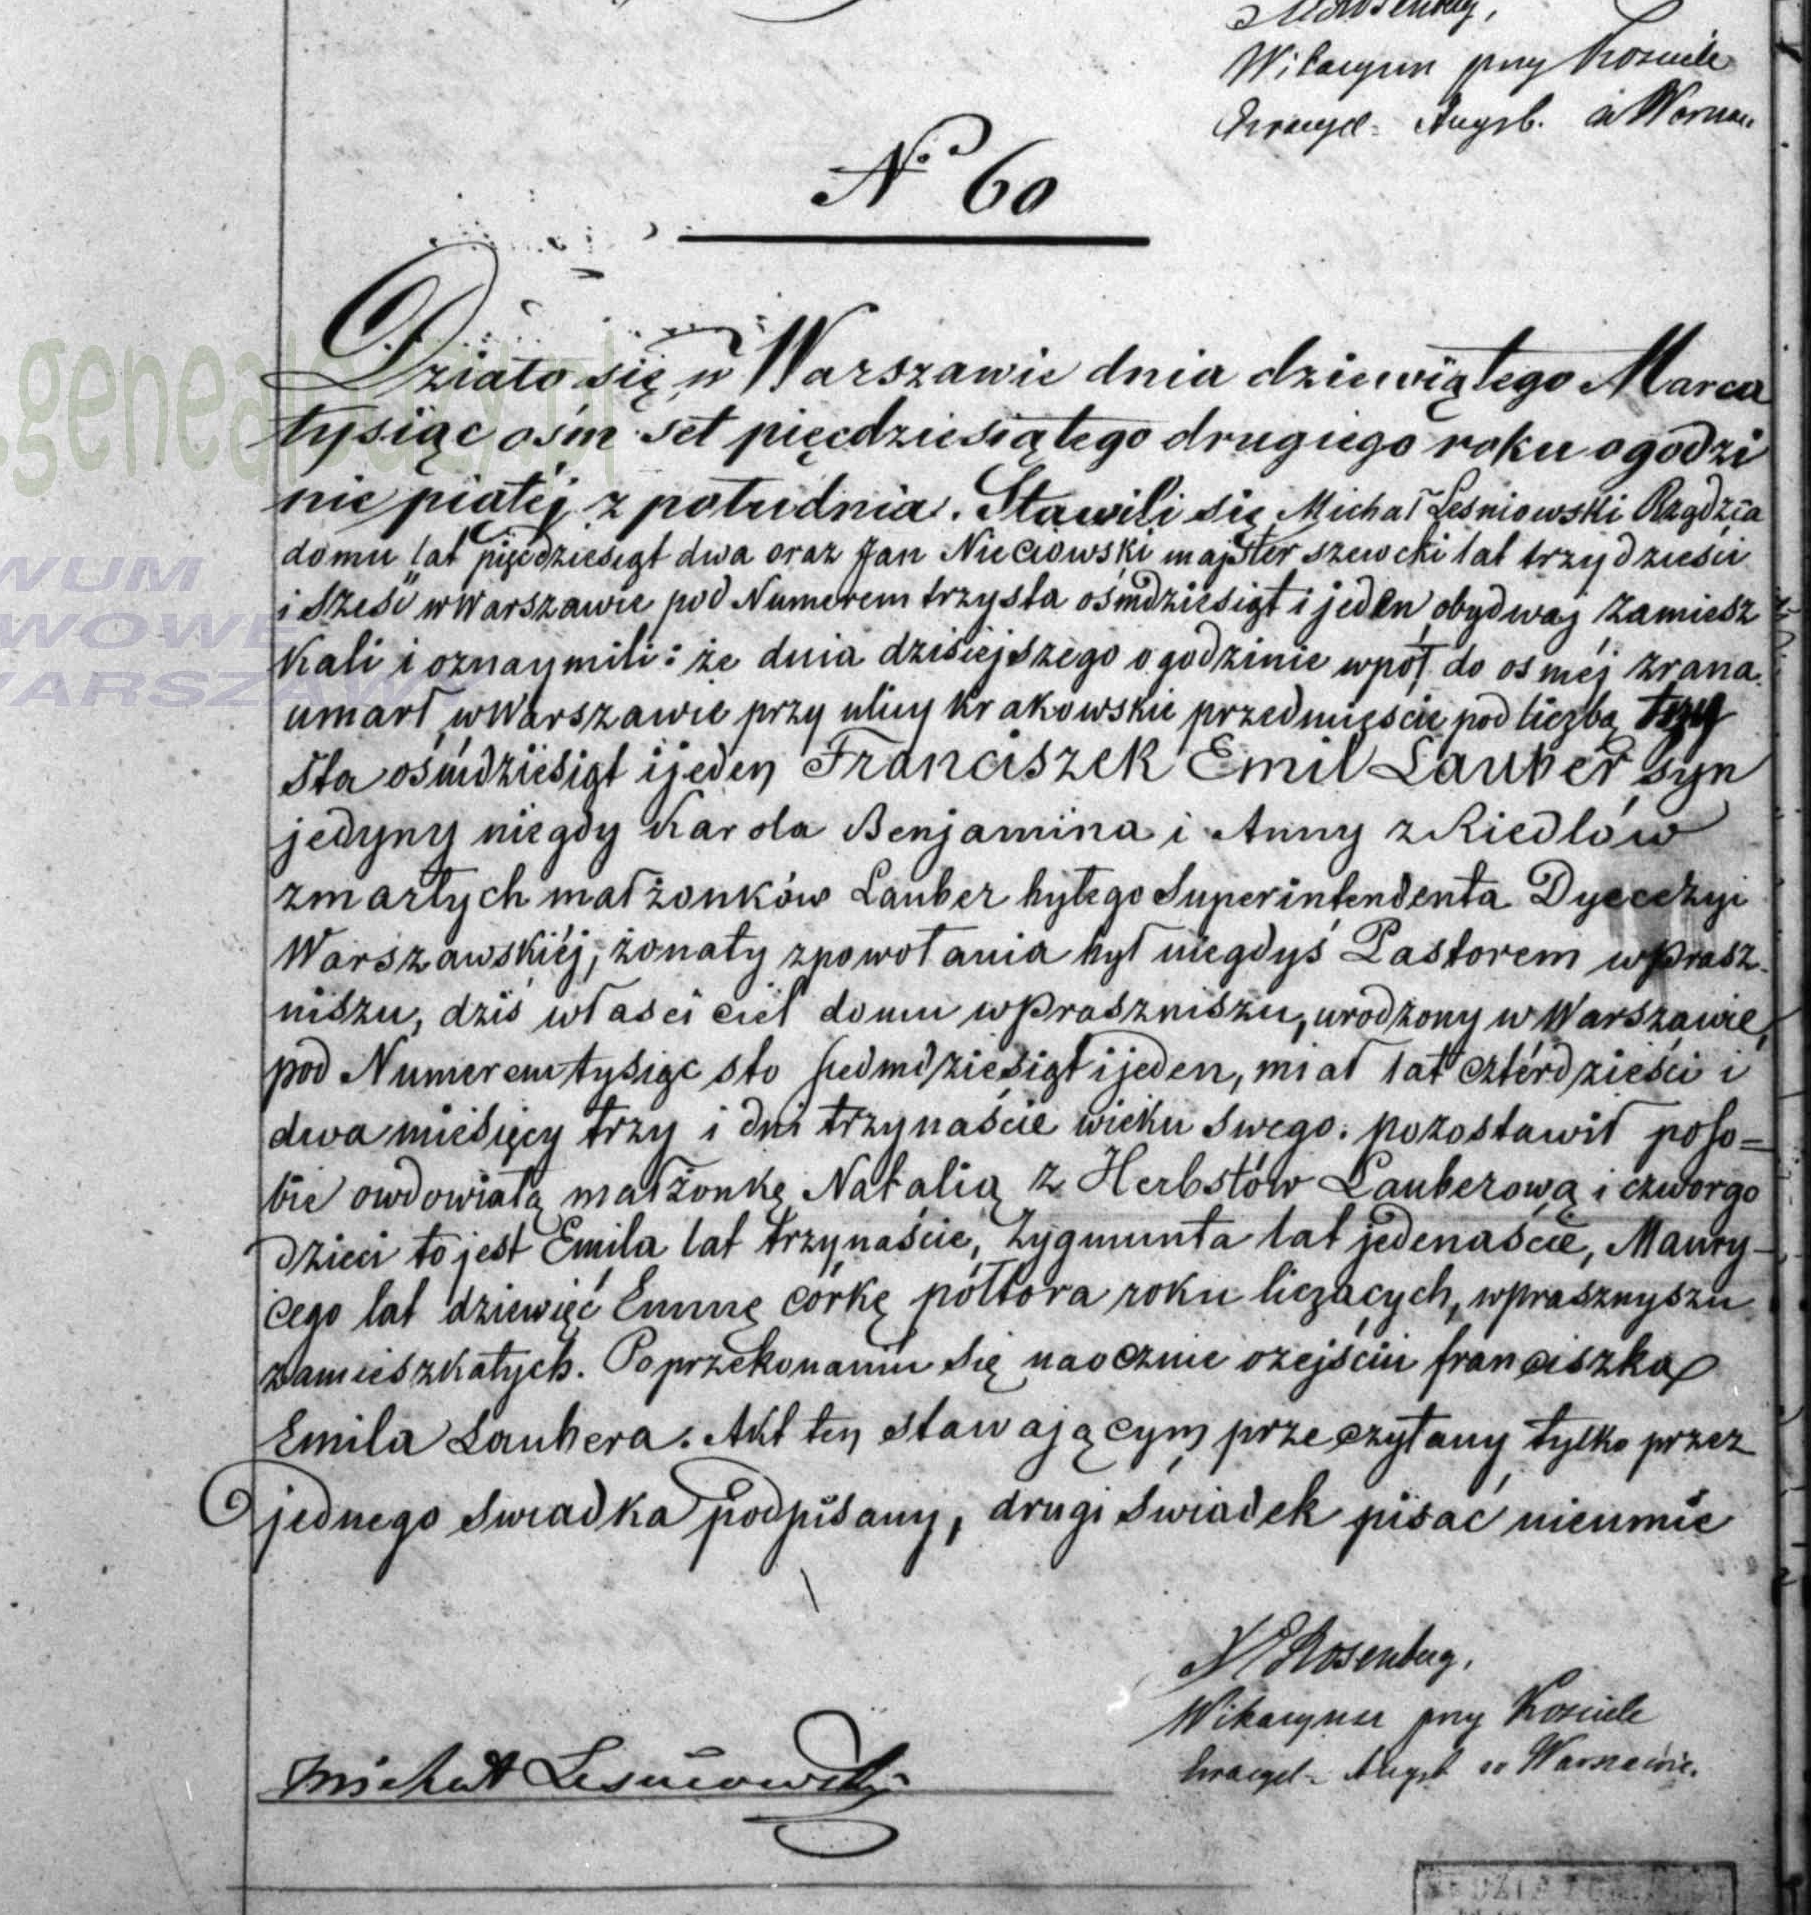 Wikaryusz przy Kosciele
Ewangel- Augsb. w Warszaw.
№ 60
Działo się w Warszawie dnia dziewiątego Marca
tysiąc ośm set pięcdziesiątego drugiego roku o godzi
nie piatéj z południa. Stawili się Michał Leśniowski Rządzca
domu lat pięcdziesiąt dwa oraz Jan Nieciowski majster szewcki lat trzydzieści
i sześć w Warszawie pod Numerem trzysta ośmdziesiąt i jeden obydwaj zamiesz
kali i oznaymili: że dnia dzisiejszego o godzinie wpół do osméj zrana
umarł w Warszawie przy ulicy Krakowskie przedmieście pod liczbą trzy
sta ośmdziesiąt i jeden Franciszek Emil Lauber syn
jedyny niegdy Karola Benjamina i Anny z Riedlów
zmarłych małżonków Lauber byłego Superintendenta Dyecezyi
Warszawskiéj, żonaty z powołania był niegdyś Pastorem w Prasz-
niszu, dziś właściciel domu w Praszniszu, urodzony w Warszawie,
pod Numerem tysiąc sto siedmdziesiąt i jeden, miał lat czterdzieści i
dwa miesięcy trzy i dni trzynaście wieku swego. pozostawił poso=
bie owdowiałą małżonkę Natalią z Herbstów Lauberową i czworgo
dzieci to jest Emila lat trzynaście, Zygmunta lat jedenaście, Maury-
cego lat dziewięć Emmę córkę półtora roku liczących, w Prasznyszu
zamieszkałych. Po przekonaniu się naocznie o zejściu franciszka
Emila Laubera. Akt ten stawającym przeczytany tylko przez
jednego swiadka podpisany, drugi świadek pisać nieumie
Rosenberg,
Wikaryusz przy Kosciele
Ewangel- Augsb w Warszawie.
Michał Lesniowski
.genealodzy.pl
WUM
WOWE
WARSZAW